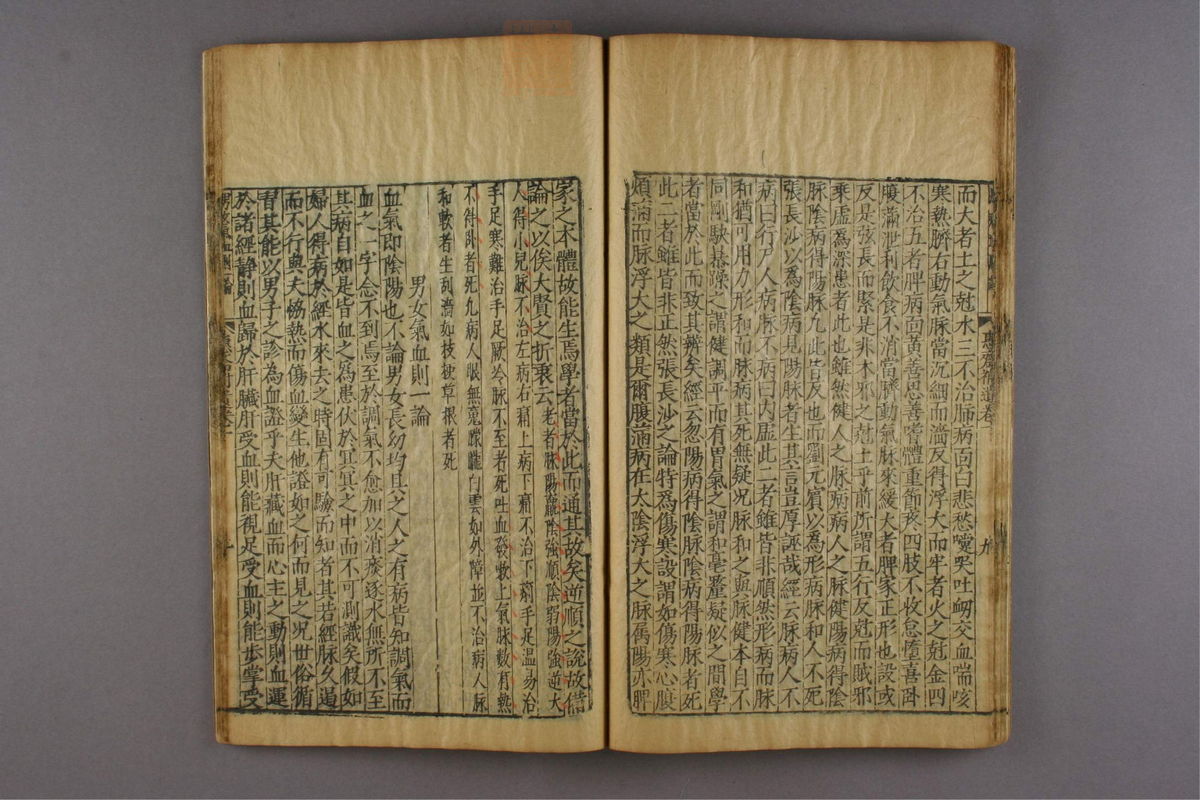 而大者土之尅水三不治肺病面白悲愁嚏哭吐衂交血喘咳
寒熱臍右動氣脉當沉細而濇反得浮大而牢者火之尅金四
不治五者脾病面黃善思善嗜體重節疼四肢不收怠惰喜卧
腹滿泄利飲食不消當臍動氣脉來緩大者脾家正形也設或
反是弦長而緊是非木邪之尅土乎前所謂五行反尅而賊邪
乘虛爲深患者此也雖然健人之脉病病人之脉健陽病得陰
脉陰病得陽脉凡此皆反也而劉元賓以爲形病脉和人不死
張長沙以爲陰病見陽脉者生其言豈厚誣哉經云脉病人不
病曰行尸人病脉不病曰内虛此二者雖皆非順然形病而脉
和猶可用力形和而脉病其死無疑况脉和之與脉健本自不
同剛駃暴躁之謂健調平而有胃氣之謂和毫釐疑似之間學
者當於此而致其辨矣經云忽陽病得陰脉陰病得陽脉者死
此二者雖皆非正然張長沙之論特爲傷寒設謂如傷寒心腹
煩滿而脉浮大之類是爾腹滿病在大陰浮大之脉属陽亦脾
家之本體故能生焉學者當於此而通其故矣逆順之說故借
論之以俟大賢之折衷云老者脉陽麄陰強順陰弱陽強逆大
人得小兒脉不治左病右痛上病下痛不治下痢手足温易治
手足寒難治手足厥冷脉不至者死吐血發欬上氣脉數有熱
不得卧者死九病人眼無䰟朦朧白雲如外障並不治病人脉
和軟者生刮濇如枝梗草根者死
男女氣血則一論
血氣即陰陽也不論男女長幼均具之人之有病皆知調氣而
血之一字念不到焉至於調氣不愈加以消痰逐水無所不至
其病自如是皆血之爲患伏於冥冥之中而不可測識矣假如
婦人得病於經水來去之時固有可驗而知者其若經脉久遏
而不行與夫協熱而傷血變生他證如之何而見之况世俗循
習其能以男子之診為血證乎夫肝藏血而心主之動則血運
於諸經静則血歸於肝臟肝受血則能視足受血則能步掌受